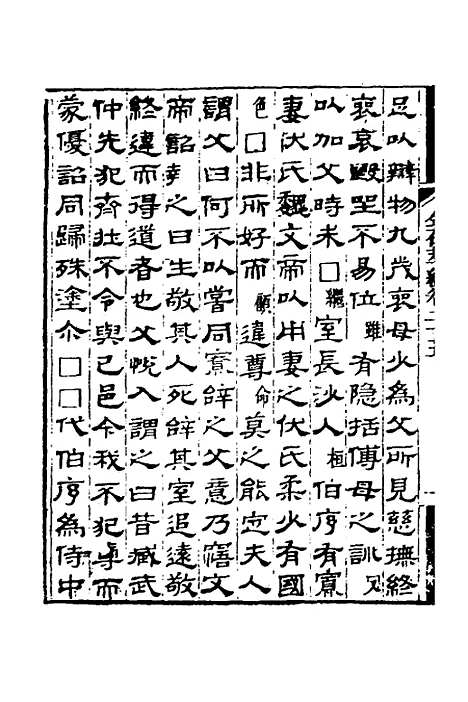 足以辯物九歲喪母少為父所見慈撫終
喪哀毀聖不易位雖有隱括傅母之訓又
以加父時未□繼室長沙人桓伯序有寡
妻伏氏魏文帝以中妻之伏氏柔少有國
色□非所好而顧違尊命莫之能定夫人
謂父曰何不以嘗同寮辭之父意乃寤文
帝詔幸之曰生敬其人死辭其室追遠敬
終違而得道者也父悅入謂之曰昔臧武
仲先犯齊壯不令與己邑今我不犯卓而
蒙優詔同歸殊塗尒□□代伯序為侍中